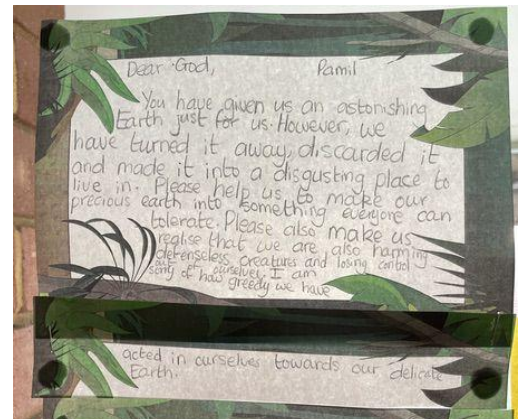 Dear God, Pamil
You have given us an astonishing
Earth just for us. However, we
have turned it away, discarded it
and made it into a disgusting place to
live in. Please help us to make our
precious earth into something everyone can
tolerate. Please also make us
realise that we are also harming
defenseless creatures and losing control
out ourselves. I am
sorry of how greedy we have
acted in ourselves towards our delicate
Earth.